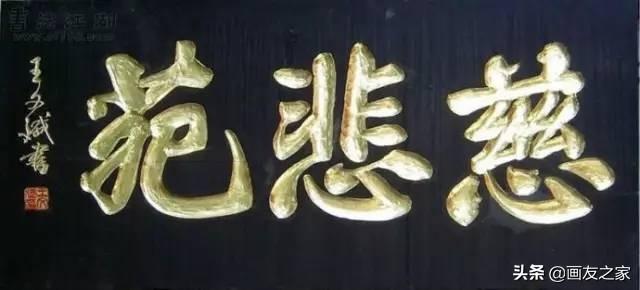 慈悲苑
王文斌書
头条 @画友之家